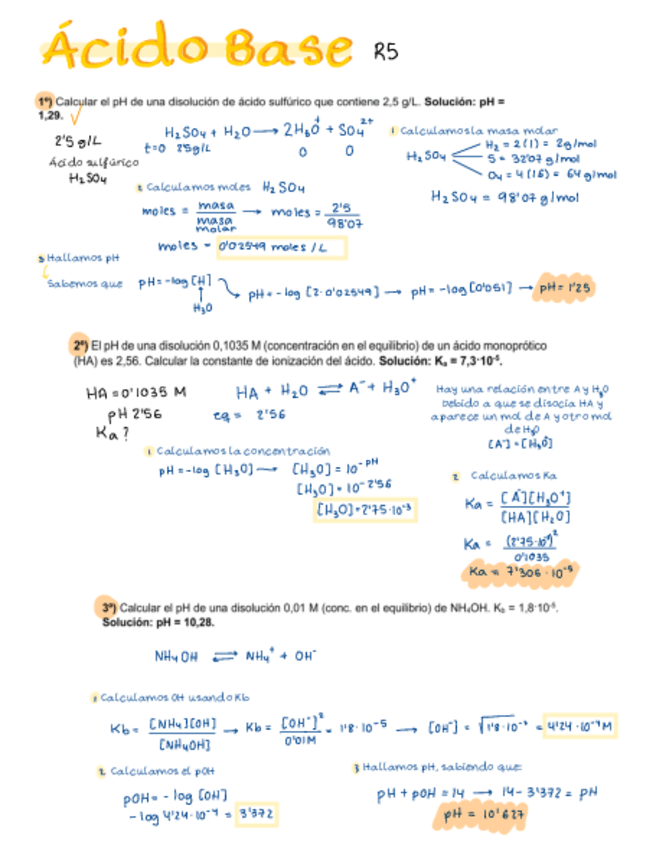 Ácido Base R5
1º) Calcular el pH de una disolución de ácido sulfúrico que contiene 2,5 g/L. Solución: pH =
1,29.
2'5 g/L
Ácido sulfúrico
H₂SO₄
H₂SO₄ + H₂O → 2H₃O⁺ + SO₄²⁺
t=0 25g/L 0 0
1 Calculamos la masa molar
H₂SO₄
H₂ = 2(1) = 2g/mol
S = 32'07 g/mol
O₄ = 4(16) = 64 g/mol
H₂SO₄ = 98'07 g/mol
2 Calculamos moles H₂SO₄
moles = masa / masa molar → moles = 2'5 / 98'07
moles = 0'02549 moles / L
3 Hallamos pH
Sabemos que pH = -log [H] → pH = - log [2·0'02549] → pH = -log [0'051] → pH = 1'25
H₃O
2º) El pH de una disolución 0,1035 M (concentración en el equilibrio) de un ácido monoprótico
(HA) es 2,56. Calcular la constante de ionización del ácido. Solución: Kₐ = 7,3·10⁻⁵.
HA = 0'1035 M
pH 2'56
Ka?
HA + H₂O ⇌ A⁻ + H₃O⁺
eq = 2'56
Hay una relación entre A y H₃O
Debido a que se disocia HA y
aparece un mol de A y otro mol
de H₃O
[A⁻] = [H₃O]
1 Calculamos la concentración
pH = -log [H₃O] → [H₃O] = 10^-pH
[H₃O] = 10^-2'56
[H₃O] = 2'75·10⁻³
2 Calculamos Ka
Ka = [A⁻][H₃O⁺] / [HA][H₂O]
Ka = (2'75·10⁻³)² / 0'1035
Ka = 7'306·10⁻⁵
3º) Calcular el pH de una disolución 0,01 M (conc. en el equilibrio) de NH₄OH. K_b = 1,8·10⁻⁵.
Solución: pH = 10,28.
NH₄OH ⇌ NH₄⁺ + OH⁻
1 Calculamos OH usando Kb
Kb = [NH₄][OH] / [NH₄OH] → Kb = [OH⁻]² / 0'01M = 1'8·10⁻⁵ → [OH⁻] = √1'8·10⁻⁷ = 4'24·10⁻⁴M
2 Calculamos el pOH
pOH = - log [OH]
- log 4'24·10⁻⁴ = 3'372
3 Hallamos pH, sabiendo que:
pH + pOH = 14 → 14 - 3'372 = pH
pH = 10'627